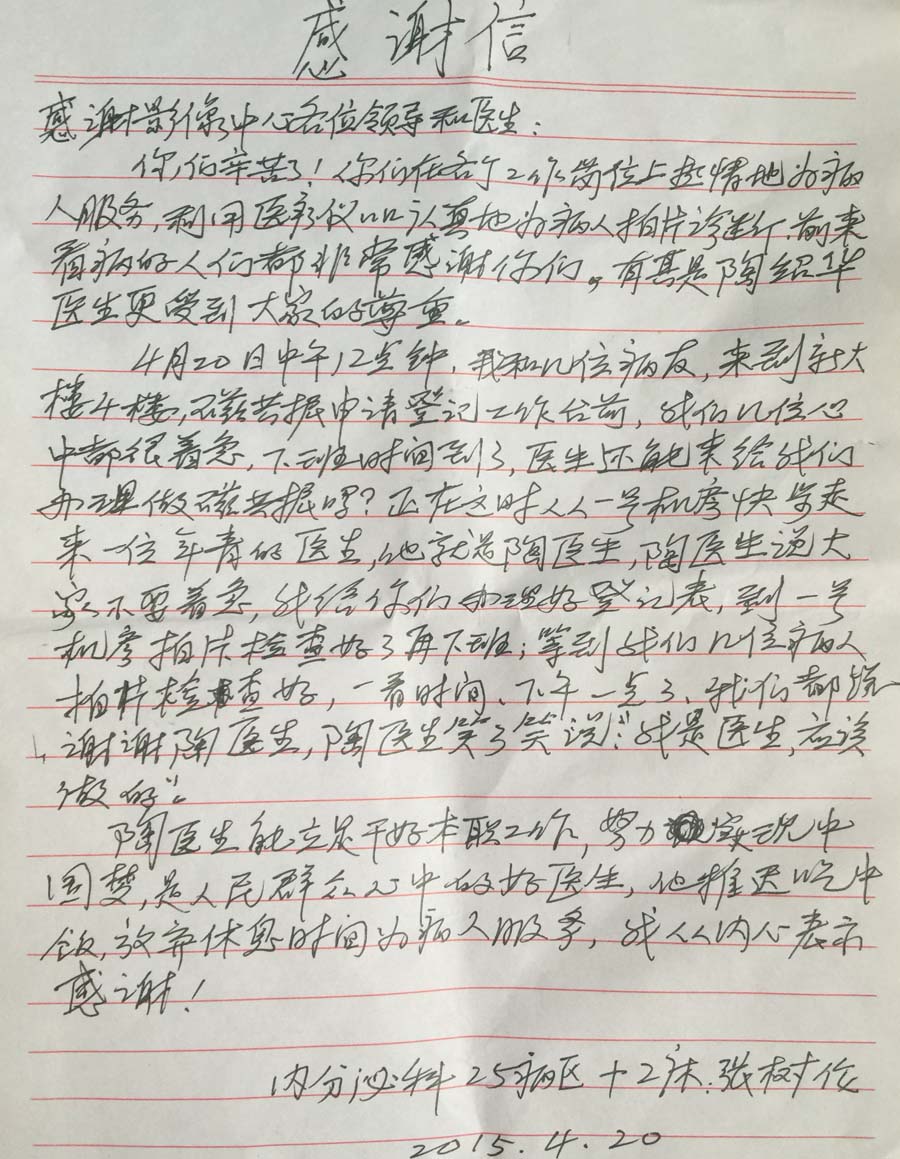 感谢信
感谢影像中心各位领导和医生:
你们辛苦了!你们在各个工作岗位上热情地为病
人服务,利用医疗仪器认真地为病人拍片诊断,前来
看病的人们都非常感谢你们。有其是陶绍华
医生更受到大家的尊重。
4月20日中午12点钟,我和几位病友,来到新大
楼4楼,磁共振申请登记工作台前,我们几位心
中都很着急,下班时间到了,医生还能来给我们
办理做磁共振吗?正在这时从一号机房快步走
来一位年青的医生,他就是陶医生,陶医生说大
家不要着急,我给你们办理好登记表,到一号
机房拍片检查好了再下班;等到我们几位病人
拍片检查好,一看时间、下午一点了、我们都说
谢谢陶医生,陶医生笑了笑说:“我是医生,应该
做的”。
陶医生能立足干好本职工作,努力实现中
国梦,是人民群众心中的好医生,他推迟吃中
饭,放弃休息时间为病人服务,我从内心表示
感谢!
内分泌科25病区+2床:张树伦
2015.4.20